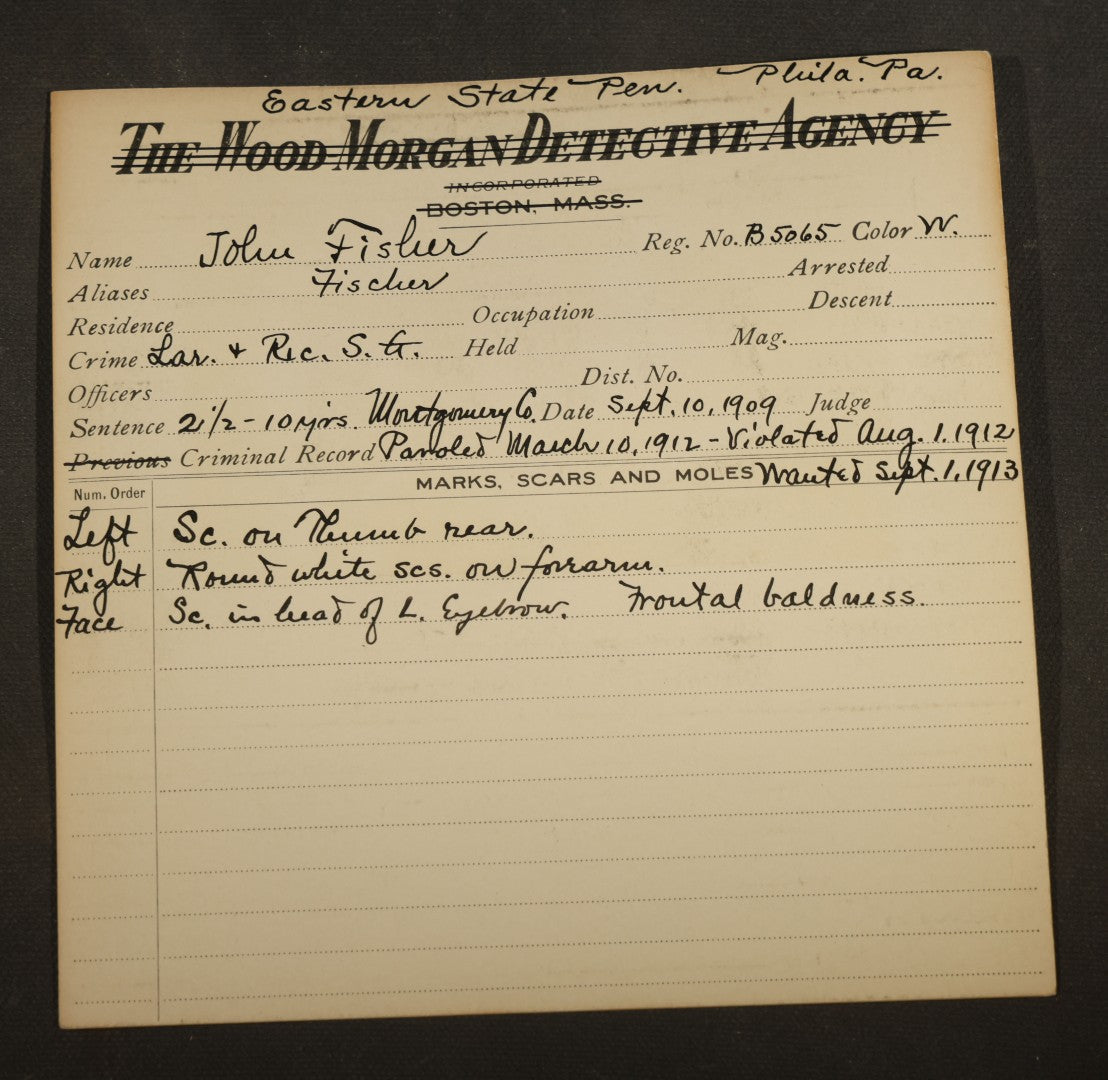 Eastern State Pen. Phila. Pa.
THE WOOD MORGAN DETECTIVE AGENCY
INCORPORATED
BOSTON, MASS.
Name John Fisher Reg. No. B5065 Color W.
Aliases Fischer Arrested
Residence Occupation Descent
Crime Lar. + Rec. S. G. Held Mag.
Officers Dist. No.
Sentence 2 1/2 - 10 yrs. Montgomery Co. Date Sept. 10, 1909 Judge
Previous Criminal Record Paroled March 10, 1912 - Violated Aug. 1. 1912
Num. Order MARKS, SCARS AND MOLES Wanted Sept. 1. 1913
Left Sc. on Thumb rear.
Right Round white scs. on forearm.
Face Sc. in head of L. Eyebrow. Frontal baldness.